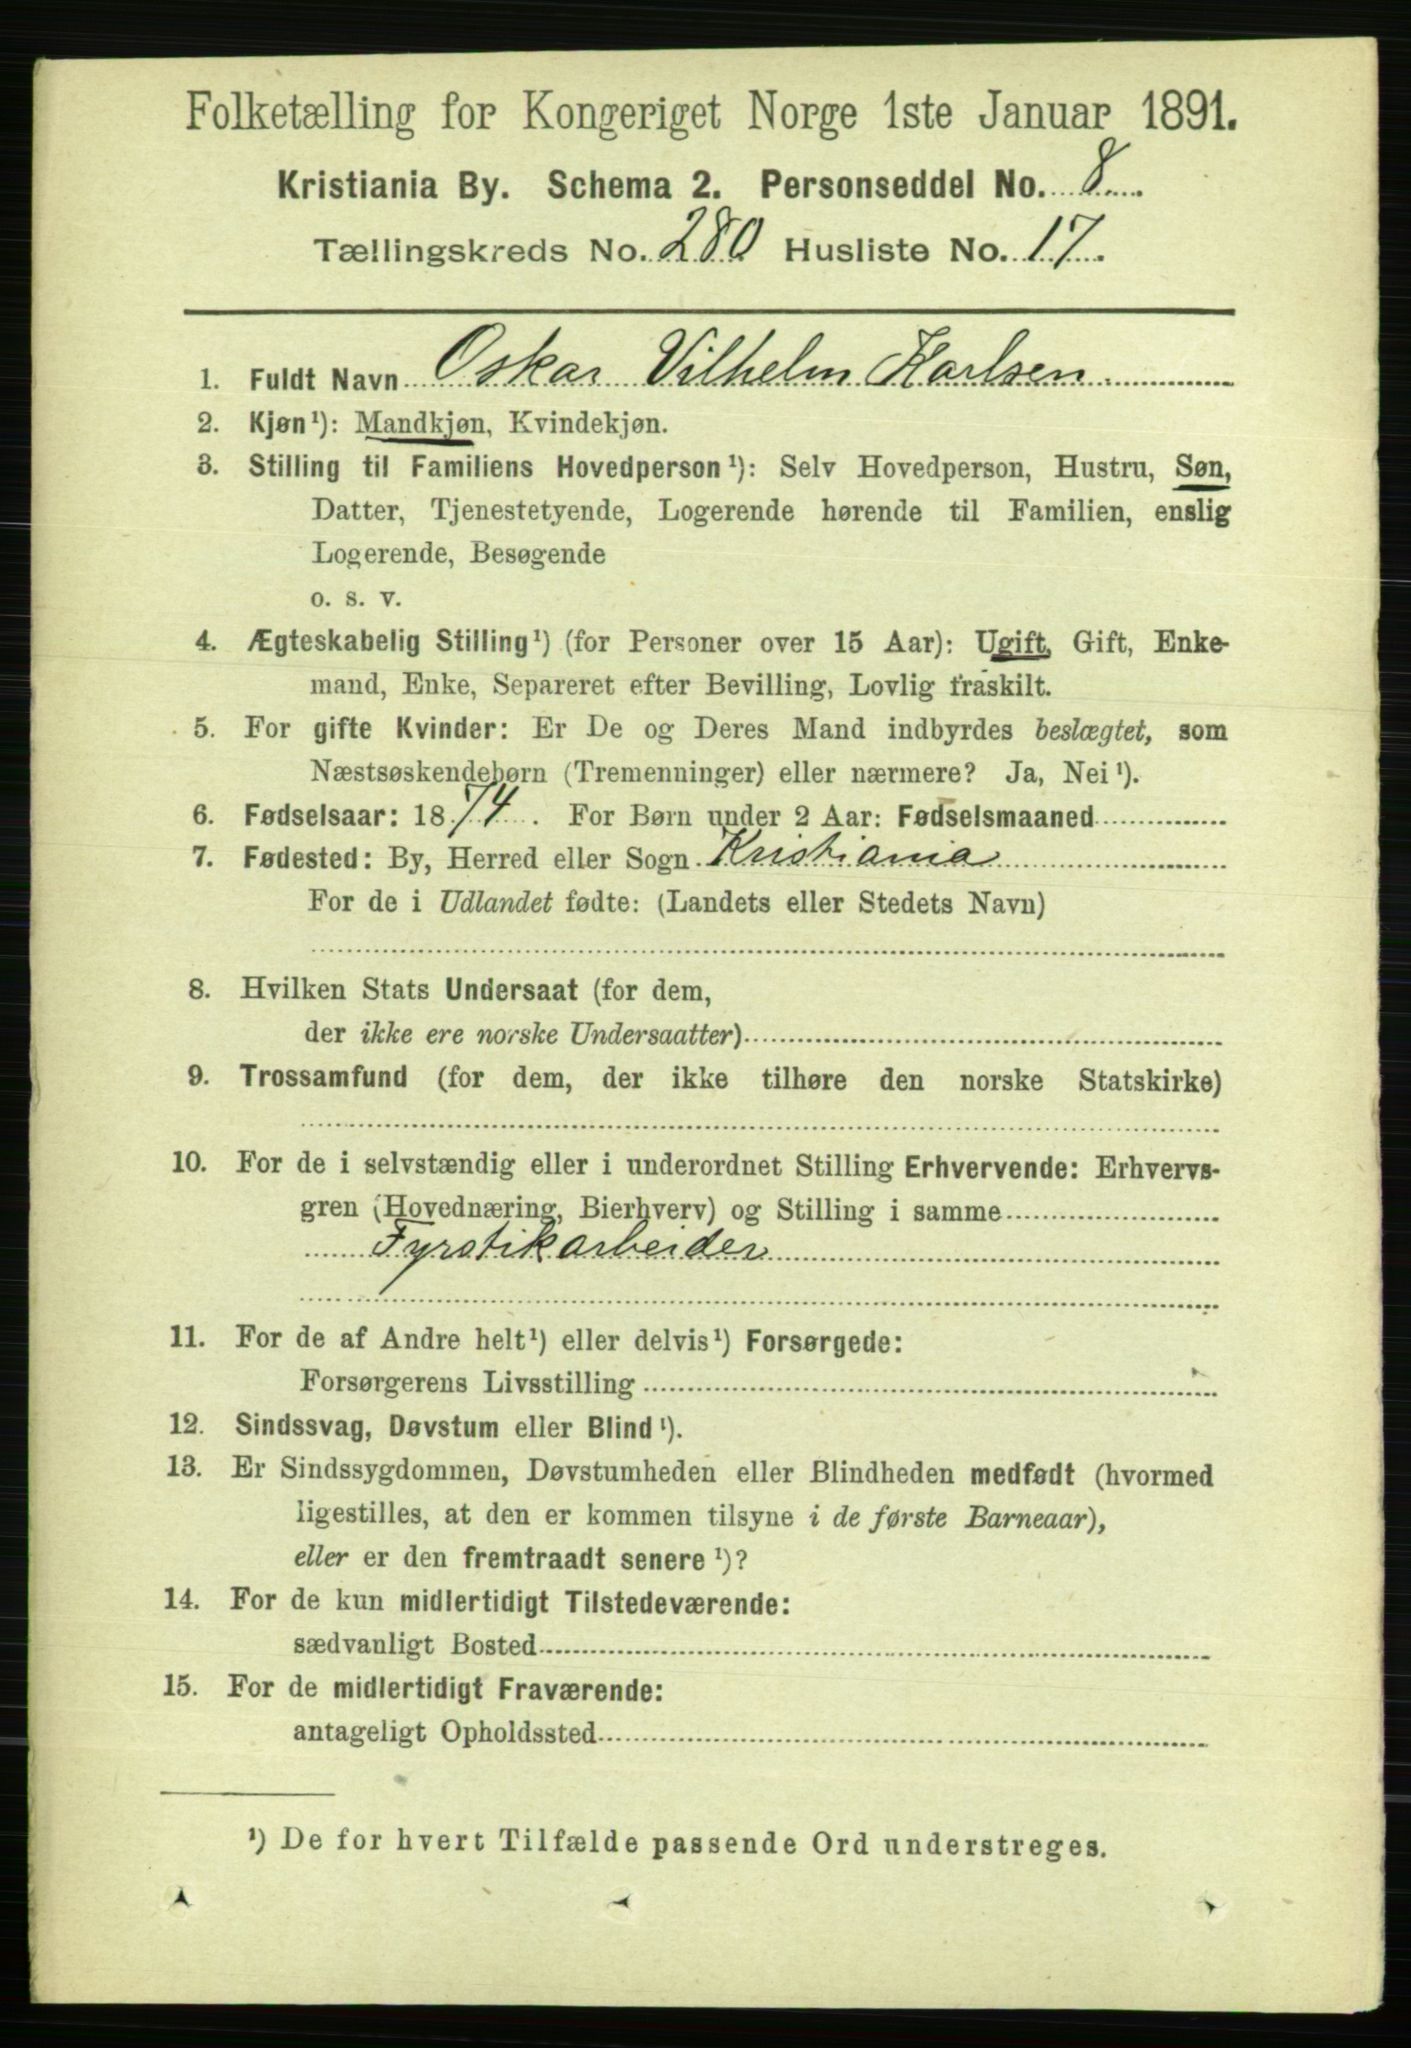 Folketælling for Kongeriget Norge 1ste Januar 1891.
Kristiania By. Schema 2. Personseddel No. 8
Tællingskreds No. 280 Husliste No. 17.
1. Fuldt Navn Oskar Vilhelm Karlsen
2. Kjøn¹): Mandkjøn, Kvindekjøn.
3. Stilling til Familiens Hovedperson¹): Selv Hovedperson, Hustru, Søn,
Datter, Tjenestetyende, Logerende hørende til Familien, enslig
Logerende, Besøgende
o. s. v.
4. Ægteskabelig Stilling¹) (for Personer over 15 Aar): Ugift, Gift, Enke-
mand, Enke, Separeret efter Bevilling, Lovlig fraskilt.
5. For gifte Kvinder: Er De og Deres Mand indbyrdes beslægtet, som
Næstsøskendebørn (Tremenninger) eller nærmere? Ja, Nei¹).
6. Fødselsaar: 1874. For Børn under 2 Aar: Fødselsmaaned
7. Fødested: By, Herred eller Sogn Kristiania
For de i Udlandet fødte: (Landets eller Stedets Navn)
8. Hvilken Stats Undersaat (for dem,
der ikke ere norske Undersaatter)
9. Trossamfund (for dem, der ikke tilhøre den norske Statskirke)
10. For de i selvstændig eller i underordnet Stilling Erhvervende: Erhvervs-
gren (Hovednæring, Bierhverv) og Stilling i samme
Fyrstikarbeider
11. For de af Andre helt¹) eller delvis¹) Forsørgede:
Forsørgerens Livsstilling
12. Sindssvag, Døvstum eller Blind¹).
13. Er Sindssygdommen, Døvstumheden eller Blindheden medfødt (hvormed
ligestilles, at den er kommen tilsyne i de første Barneaar),
eller er den fremtraadt senere¹)?
14. For de kun midlertidigt Tilstedeværende:
sædvanligt Bosted
15. For de midlertidigt Fraværende:
antageligt Opholdssted
¹) De for hvert Tilfælde passende Ord understreges.